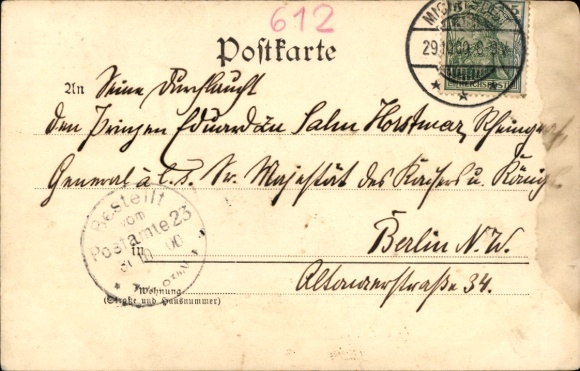 612
Postkarte
29.10.00. 8-9V.
REICHSPOST
An Seine Durchlaucht
den Prinzen Eduard zu Salm Horstmar, Rheingraf
General à.l.s. Sr. Majestät des Kaisers u. Königs
Bestellt
vom
Postamte 23
in
Berlin N.W.
Altonaerstraße 34.
Wohnung
(Straße und Hausnummer)